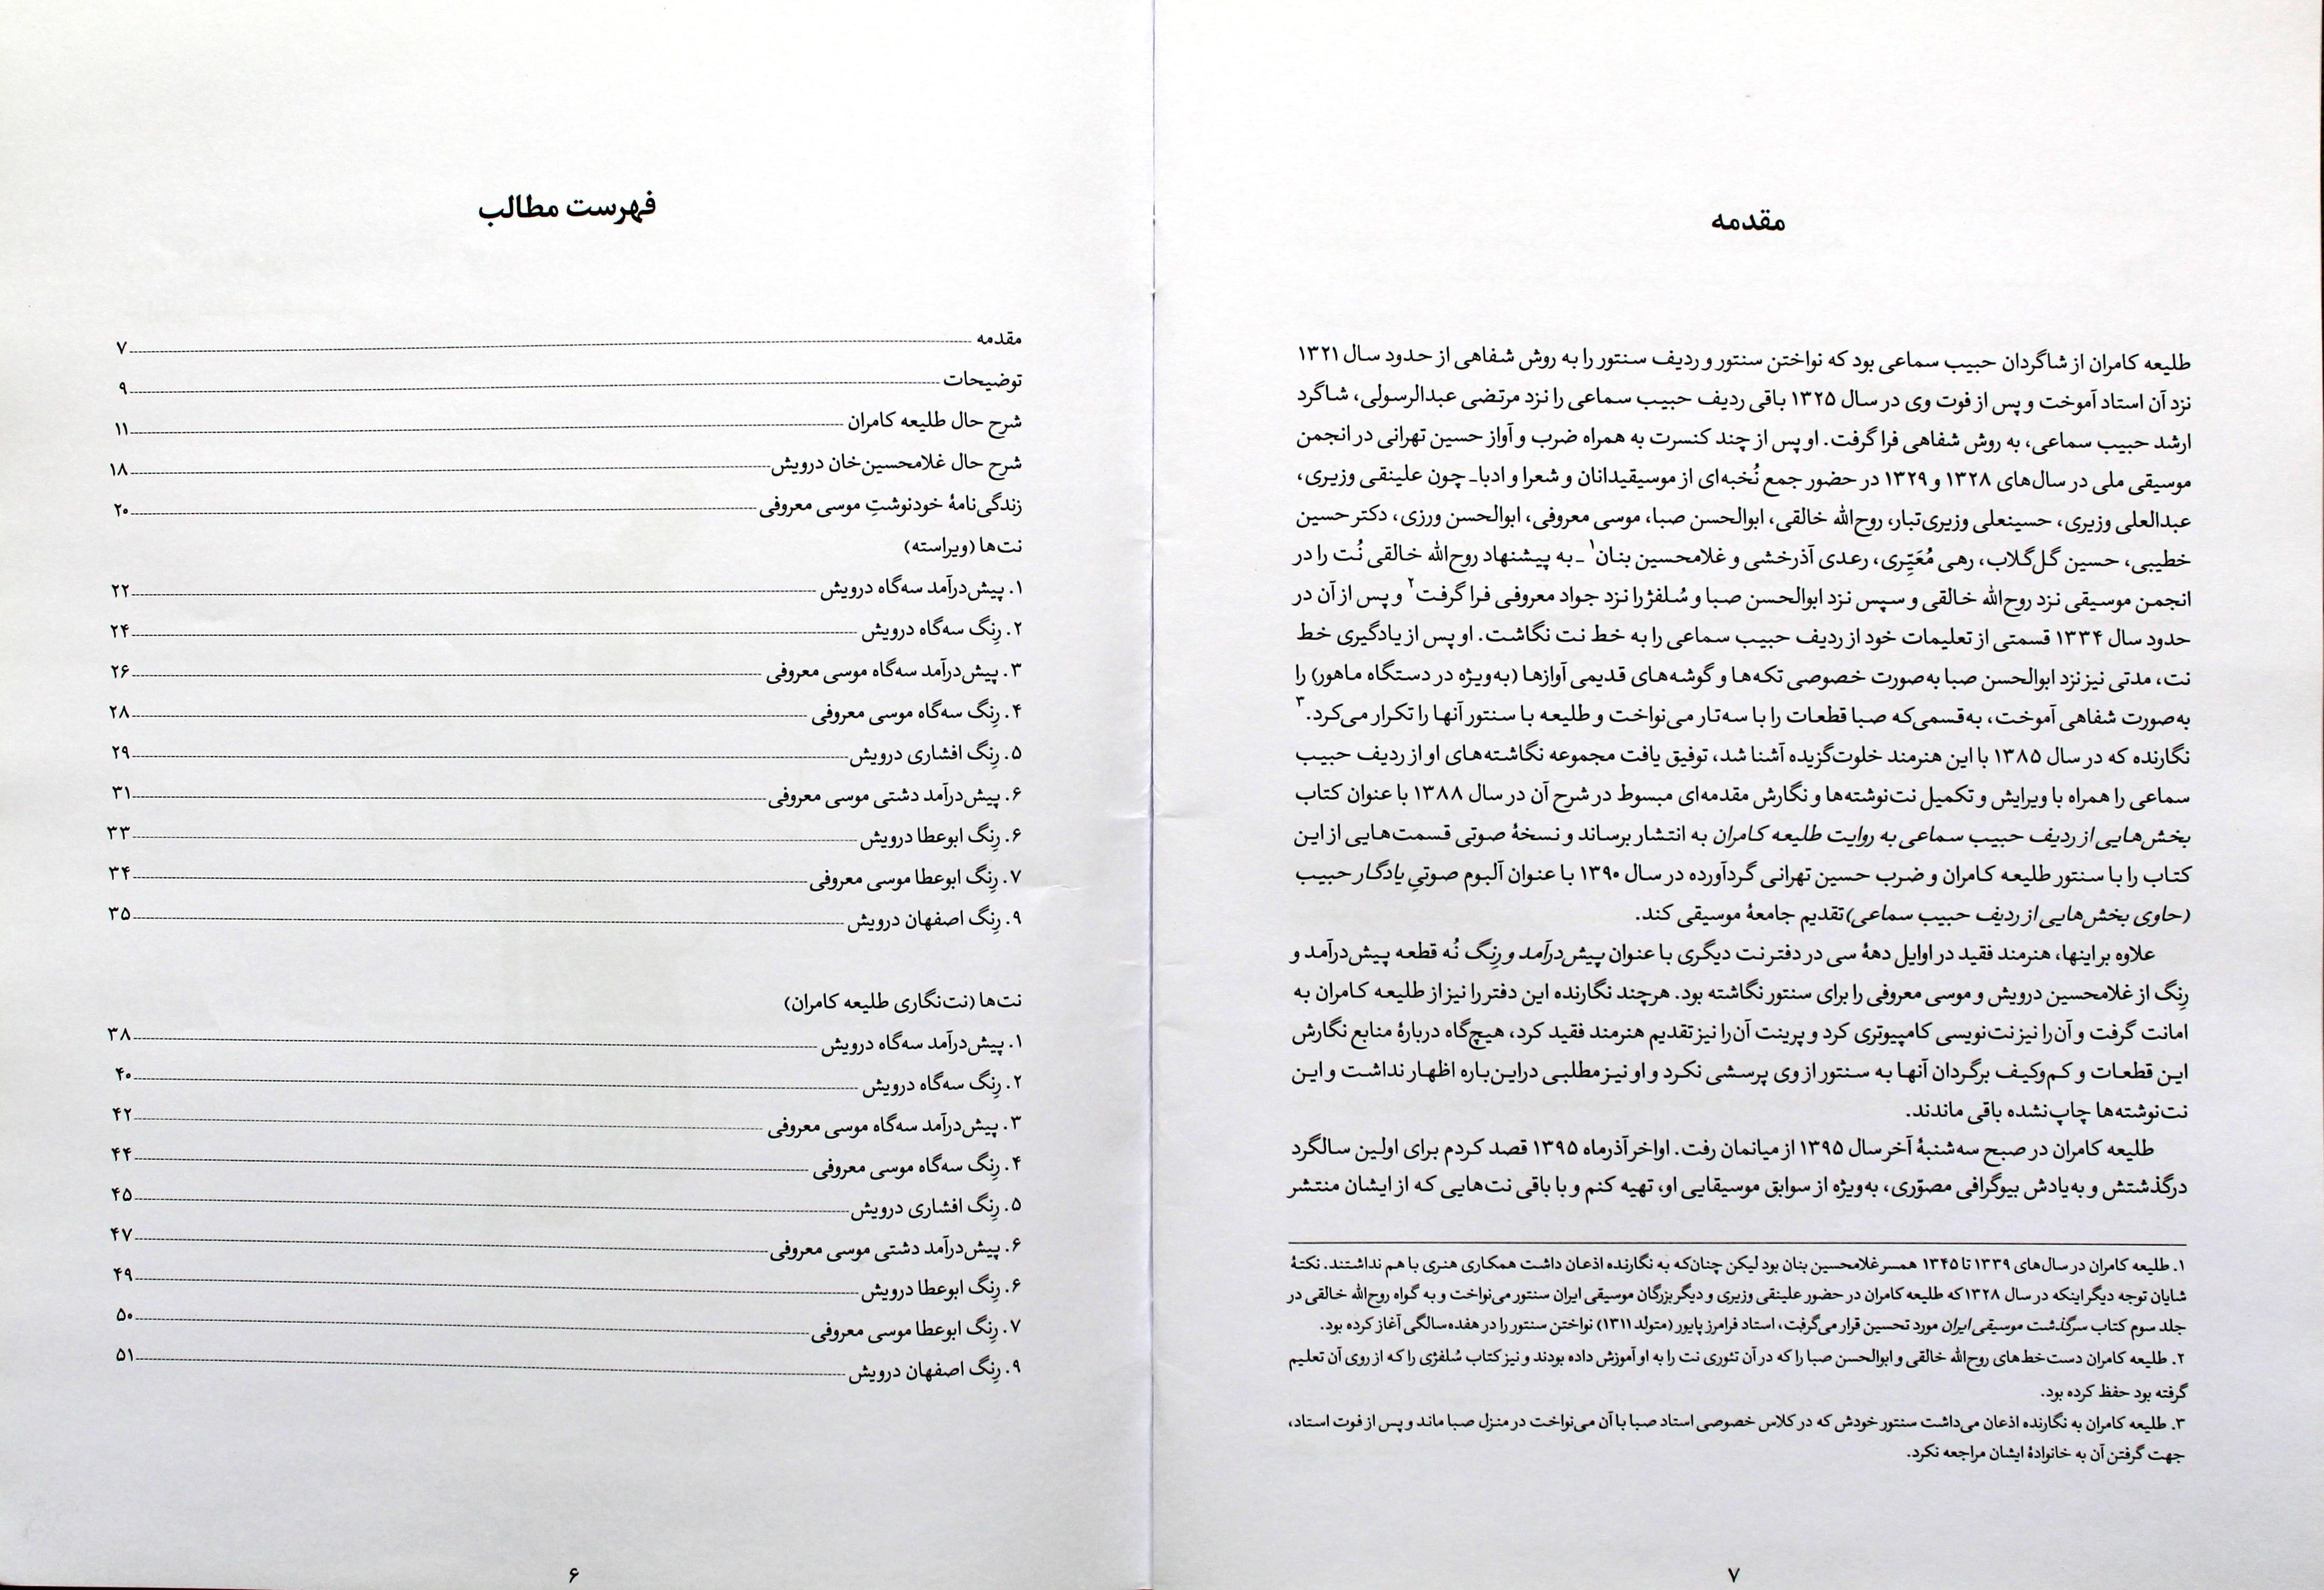 فهرست مطالب
مقدمه ۷
توضیحات ۹
شرح حال طلیعه کامران ۱۱
شرح حال غلامحسین‌خان درویش ۱۸
زندگی‌نامهٔ خودنوشتِ موسی معروفی ۲۰
نت‌ها (ویراسته)
۱. پیش‌درآمد سه‌گاه درویش ۲۲
۲. رِنگ سه‌گاه درویش ۲۴
۳. پیش‌درآمد سه‌گاه موسی معروفی ۲۶
۴. رِنگ سه‌گاه موسی معروفی ۲۸
۵. رِنگ افشاری درویش ۲۹
۶. پیش‌درآمد دشتی موسی معروفی ۳۱
۶. رِنگ ابوعطا درویش ۳۳
۷. رِنگ ابوعطا موسی معروفی ۳۴
۹. رِنگ اصفهان درویش ۳۵
نت‌ها (نت‌نگاری طلیعه کامران)
۱. پیش‌درآمد سه‌گاه درویش ۳۸
۲. رِنگ سه‌گاه درویش ۴۰
۳. پیش‌درآمد سه‌گاه موسی معروفی ۴۲
۴. رِنگ سه‌گاه موسی معروفی ۴۴
۵. رِنگ افشاری درویش ۴۵
۶. پیش‌درآمد دشتی موسی معروفی ۴۷
۶. رِنگ ابوعطا درویش ۴۹
۷. رِنگ ابوعطا موسی معروفی ۵۰
۹. رِنگ اصفهان درویش ۵۱
۶
مقدمه
طلیعه کامران از شاگردان حبیب سماعی بود که نواختن سنتور و ردیف سنتور را به روش شفاهی از حدود سال ۱۳۲۱
نزد آن استاد آموخت و پس از فوت وی در سال ۱۳۲۵ باقی ردیف حبیب سماعی را نزد مرتضی عبدالرسولی، شاگرد
ارشد حبیب سماعی، به روش شفاهی فرا گرفت. او پس از چند کنسرت به همراه ضرب و آواز حسین تهرانی در انجمن
موسیقی ملی در سال‌های ۱۳۲۸ و ۱۳۲۹ در حضور جمع نُخبه‌ای از موسیقیدانان و شعرا و ادبا ـ چون علینقی وزیری،
عبدالعلی وزیری، حسینعلی وزیری‌تبار، روح‌الله خالقی، ابوالحسن صبا، موسی معروفی، ابوالحسن ورزی، دکتر حسین
خطیبی، حسین گل‌گلاب، رهی مُعَیِّری، رعدی آذرخشی و غلامحسین بنان۱ ـ به پیشنهاد روح‌الله خالقی نُت را در
انجمن موسیقی نزد روح‌الله خالقی و سپس نزد ابوالحسن صبا و سُلفژ را نزد جواد معروفی فرا گرفت۲ و پس از آن در
حدود سال ۱۳۳۴ قسمتی از تعلیمات خود از ردیف حبیب سماعی را به خط نت نگاشت. او پس از یادگیری خط
نت، مدتی نیز نزد ابوالحسن صبا به‌صورت خصوصی تکه‌ها و گوشه‌های قدیمی آوازها (به‌ویژه در دستگاه ماهور) را
به‌صورت شفاهی آموخت، به‌قسمی‌که صبا قطعات را با سه‌تار می‌نواخت و طلیعه با سنتور آنها را تکرار می‌کرد.۳
نگارنده که در سال ۱۳۸۵ با این هنرمند خلوت‌گزیده آشنا شد، توفیق یافت مجموعه نگاشته‌های او از ردیف حبیب
سماعی را همراه با ویرایش و تکمیل نت‌نوشته‌ها و نگارش مقدمه‌ای مبسوط در شرح آن در سال ۱۳۸۸ با عنوان کتاب
بخش‌هایی از ردیف حبیب سماعی به روایت طلیعه کامران به انتشار برساند و نسخهٔ صوتی قسمت‌هایی از این
کتاب را با سنتور طلیعه کامران و ضرب حسین تهرانی گردآورده در سال ۱۳۹۰ با عنوان آلبوم صوتیِ یادگار حبیب
(حاوی بخش‌هایی از ردیف حبیب سماعی) تقدیم جامعهٔ موسیقی کند.
علاوه بر اینها، هنرمند فقید در اوایل دههٔ سی در دفتر نت دیگری با عنوان پیش‌درآمد و رِنگ نُه قطعه پیش‌درآمد و
رِنگ از غلامحسین درویش و موسی معروفی را برای سنتور نگاشته بود. هرچند نگارنده این دفتر را نیز از طلیعه کامران به
امانت گرفت و آن‌را نیز نت‌نویسی کامپیوتری کرد و پرینت آن‌را نیز تقدیم هنرمند فقید کرد، هیچ‌گاه دربارهٔ منابع نگارش
این قطعات و کم‌وکیف برگردان آنها به سنتور از وی پرسشی نکرد و او نیز مطلبی دراین‌باره اظهار نداشت و این
نت‌نوشته‌ها چاپ‌نشده باقی ماندند.
طلیعه کامران در صبح سه‌شنبهٔ آخر سال ۱۳۹۵ از میانمان رفت. اواخر آذرماه ۱۳۹۵ قصد کردم برای اولین سالگرد
درگذشتش و به‌یادش بیوگرافی مصوّری، به‌ویژه از سوابق موسیقایی او، تهیه کنم و با باقی نت‌هایی که از ایشان منتشر
۱. طلیعه کامران در سال‌های ۱۳۳۹ تا ۱۳۴۵ همسر غلامحسین بنان بود لیکن چنان‌که به نگارنده اذعان داشت همکاری هنری با هم نداشتند. نکتهٔ
شایان توجه دیگر اینکه در سال ۱۳۲۸ که طلیعه کامران در حضور علینقی وزیری و دیگر بزرگان موسیقی ایران سنتور می‌نواخت و به گواه روح‌الله خالقی در
جلد سوم کتاب سرگذشت موسیقی ایران مورد تحسین قرار می‌گرفت، استاد فرامرز پایور (متولد ۱۳۱۱) نواختن سنتور را در هفده‌سالگی آغاز کرده بود.
۲. طلیعه کامران دست‌خط‌های روح‌الله خالقی و ابوالحسن صبا را که در آن تئوری نت را به او آموزش داده بودند و نیز کتاب سُلفژی را که از روی آن تعلیم
گرفته بود حفظ کرده بود.
۳. طلیعه کامران به نگارنده اذعان می‌داشت سنتور خودش که در کلاس خصوصی استاد صبا با آن می‌نواخت در منزل صبا ماند و پس از فوت استاد،
جهت گرفتن آن به خانوادهٔ ایشان مراجعه نکرد.
۷